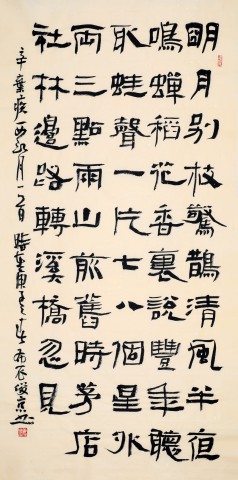 明月別枝驚鵲清風半夜
鳴蟬稻花香裏說豐年聽
取蛙聲一片七八個星外
両三點雨山前舊時茅店
社林邊路轉溪橋忽見
辛棄疾西江月一首